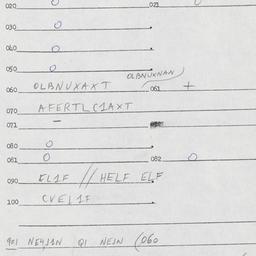 020 O 021 O
030 O
040 O
050 O OLBNUXNAN
060 OLBNUXAXT 061 +
070 AFERTLC1AXT
071 –
080 O
081 O 082 O
090 EL1F // HELF ELF
100 CVEL1F
NEIN (060